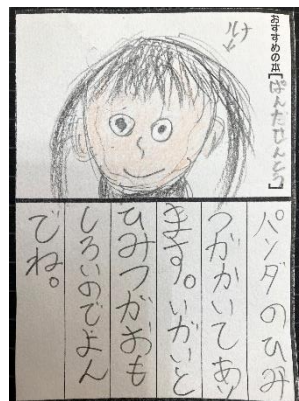 おすすめの本[ぱんだせんとう]
ルナ
パンダのひみ
つがかいてあり
ます。いがいと
ひみつがおも
しろいのでよん
でね。